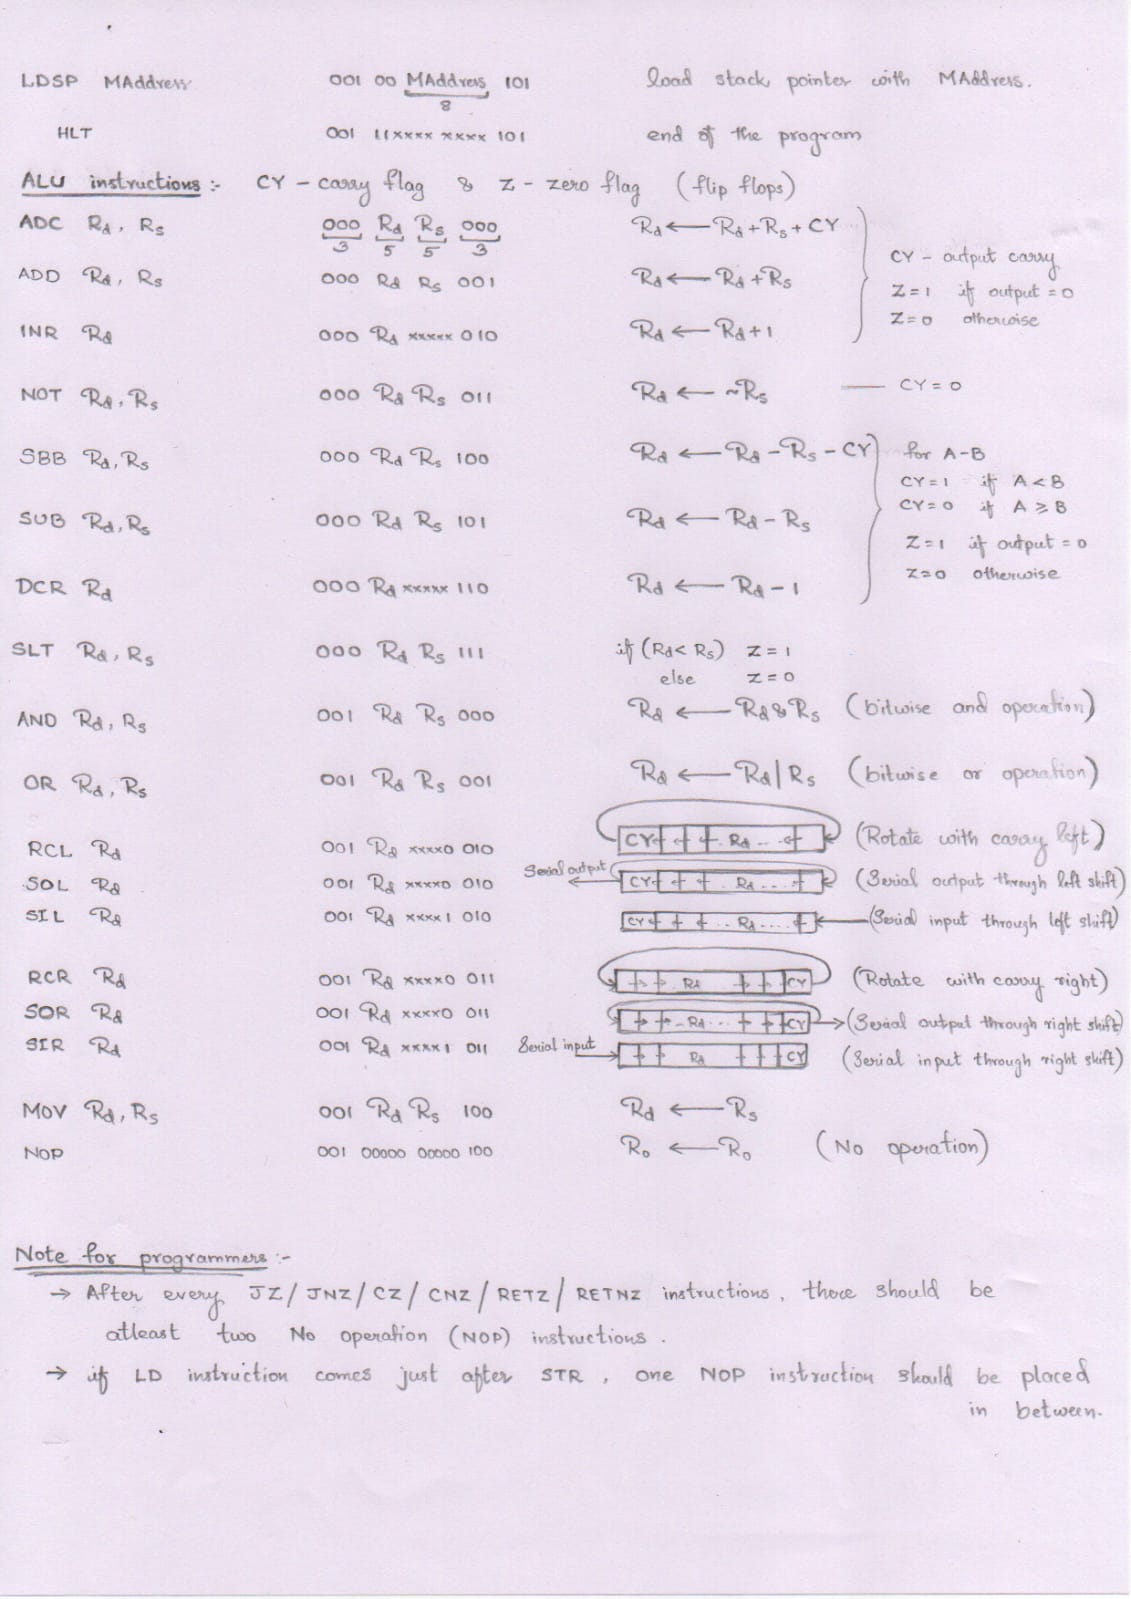 LDSP MAddress 001 00 MAddress 101 load stack pointer with MAddress.
8
HLT 001 11xxxx xxxx 101 end of the program
ALU instructions :- CY - carry flag & Z - zero flag (flip flops)
ADC Rd, Rs 000 Rd Rs 000 Rd ← Rd + Rs + CY
3 5 5 3
CY - output carry
ADD Rd, Rs 000 Rd Rs 001 Rd ← Rd + Rs
Z = 1 if output = 0
Z = 0 otherwise
INR Rd 000 Rd xxxxx 010 Rd ← Rd + 1
NOT Rd, Rs 000 Rd Rs 011 Rd ← ~Rs — CY = 0
SBB Rd, Rs 000 Rd Rs 100 Rd ← Rd - Rs - CY for A-B
CY = 1 if A < B
CY = 0 if A ≥ B
SUB Rd, Rs 000 Rd Rs 101 Rd ← Rd - Rs
Z = 1 if output = 0
Z = 0 otherwise
DCR Rd 000 Rd xxxxx 110 Rd ← Rd - 1
SLT Rd, Rs 000 Rd Rs 111 if (Rd < Rs) Z = 1
else Z = 0
AND Rd, Rs 001 Rd Rs 000 Rd ← Rd & Rs (bitwise and operation)
OR Rd, Rs 001 Rd Rs 001 Rd ← Rd | Rs (bitwise or operation)
RCL Rd 001 Rd xxxx0 010 CY .. Rd ... (Rotate with carry left)
SOL Rd 001 Rd xxxx0 010 Serial output CY .. Rd .... (Serial output through left shift)
SIL Rd 001 Rd xxxx1 010 CY .. Rd .... (Serial input through left shift)
RCR Rd 001 Rd xxxx0 011 Rd CY (Rotate with carry right)
SOR Rd 001 Rd xxxx0 011 Rd ... CY (Serial output through right shift)
SIR Rd 001 Rd xxxx1 011 Serial input Rd CY (Serial input through right shift)
MOV Rd, Rs 001 Rd Rs 100 Rd ← Rs
NOP 001 00000 00000 100 R0 ← R0 (No operation)
Note for programmers :-
→ After every JZ/ JNZ/ CZ/ CNZ/ RETZ/ RETNZ instructions, there should be
atleast two No operation (NOP) instructions.
→ if LD instruction comes just after STR, one NOP instruction should be placed
in between.